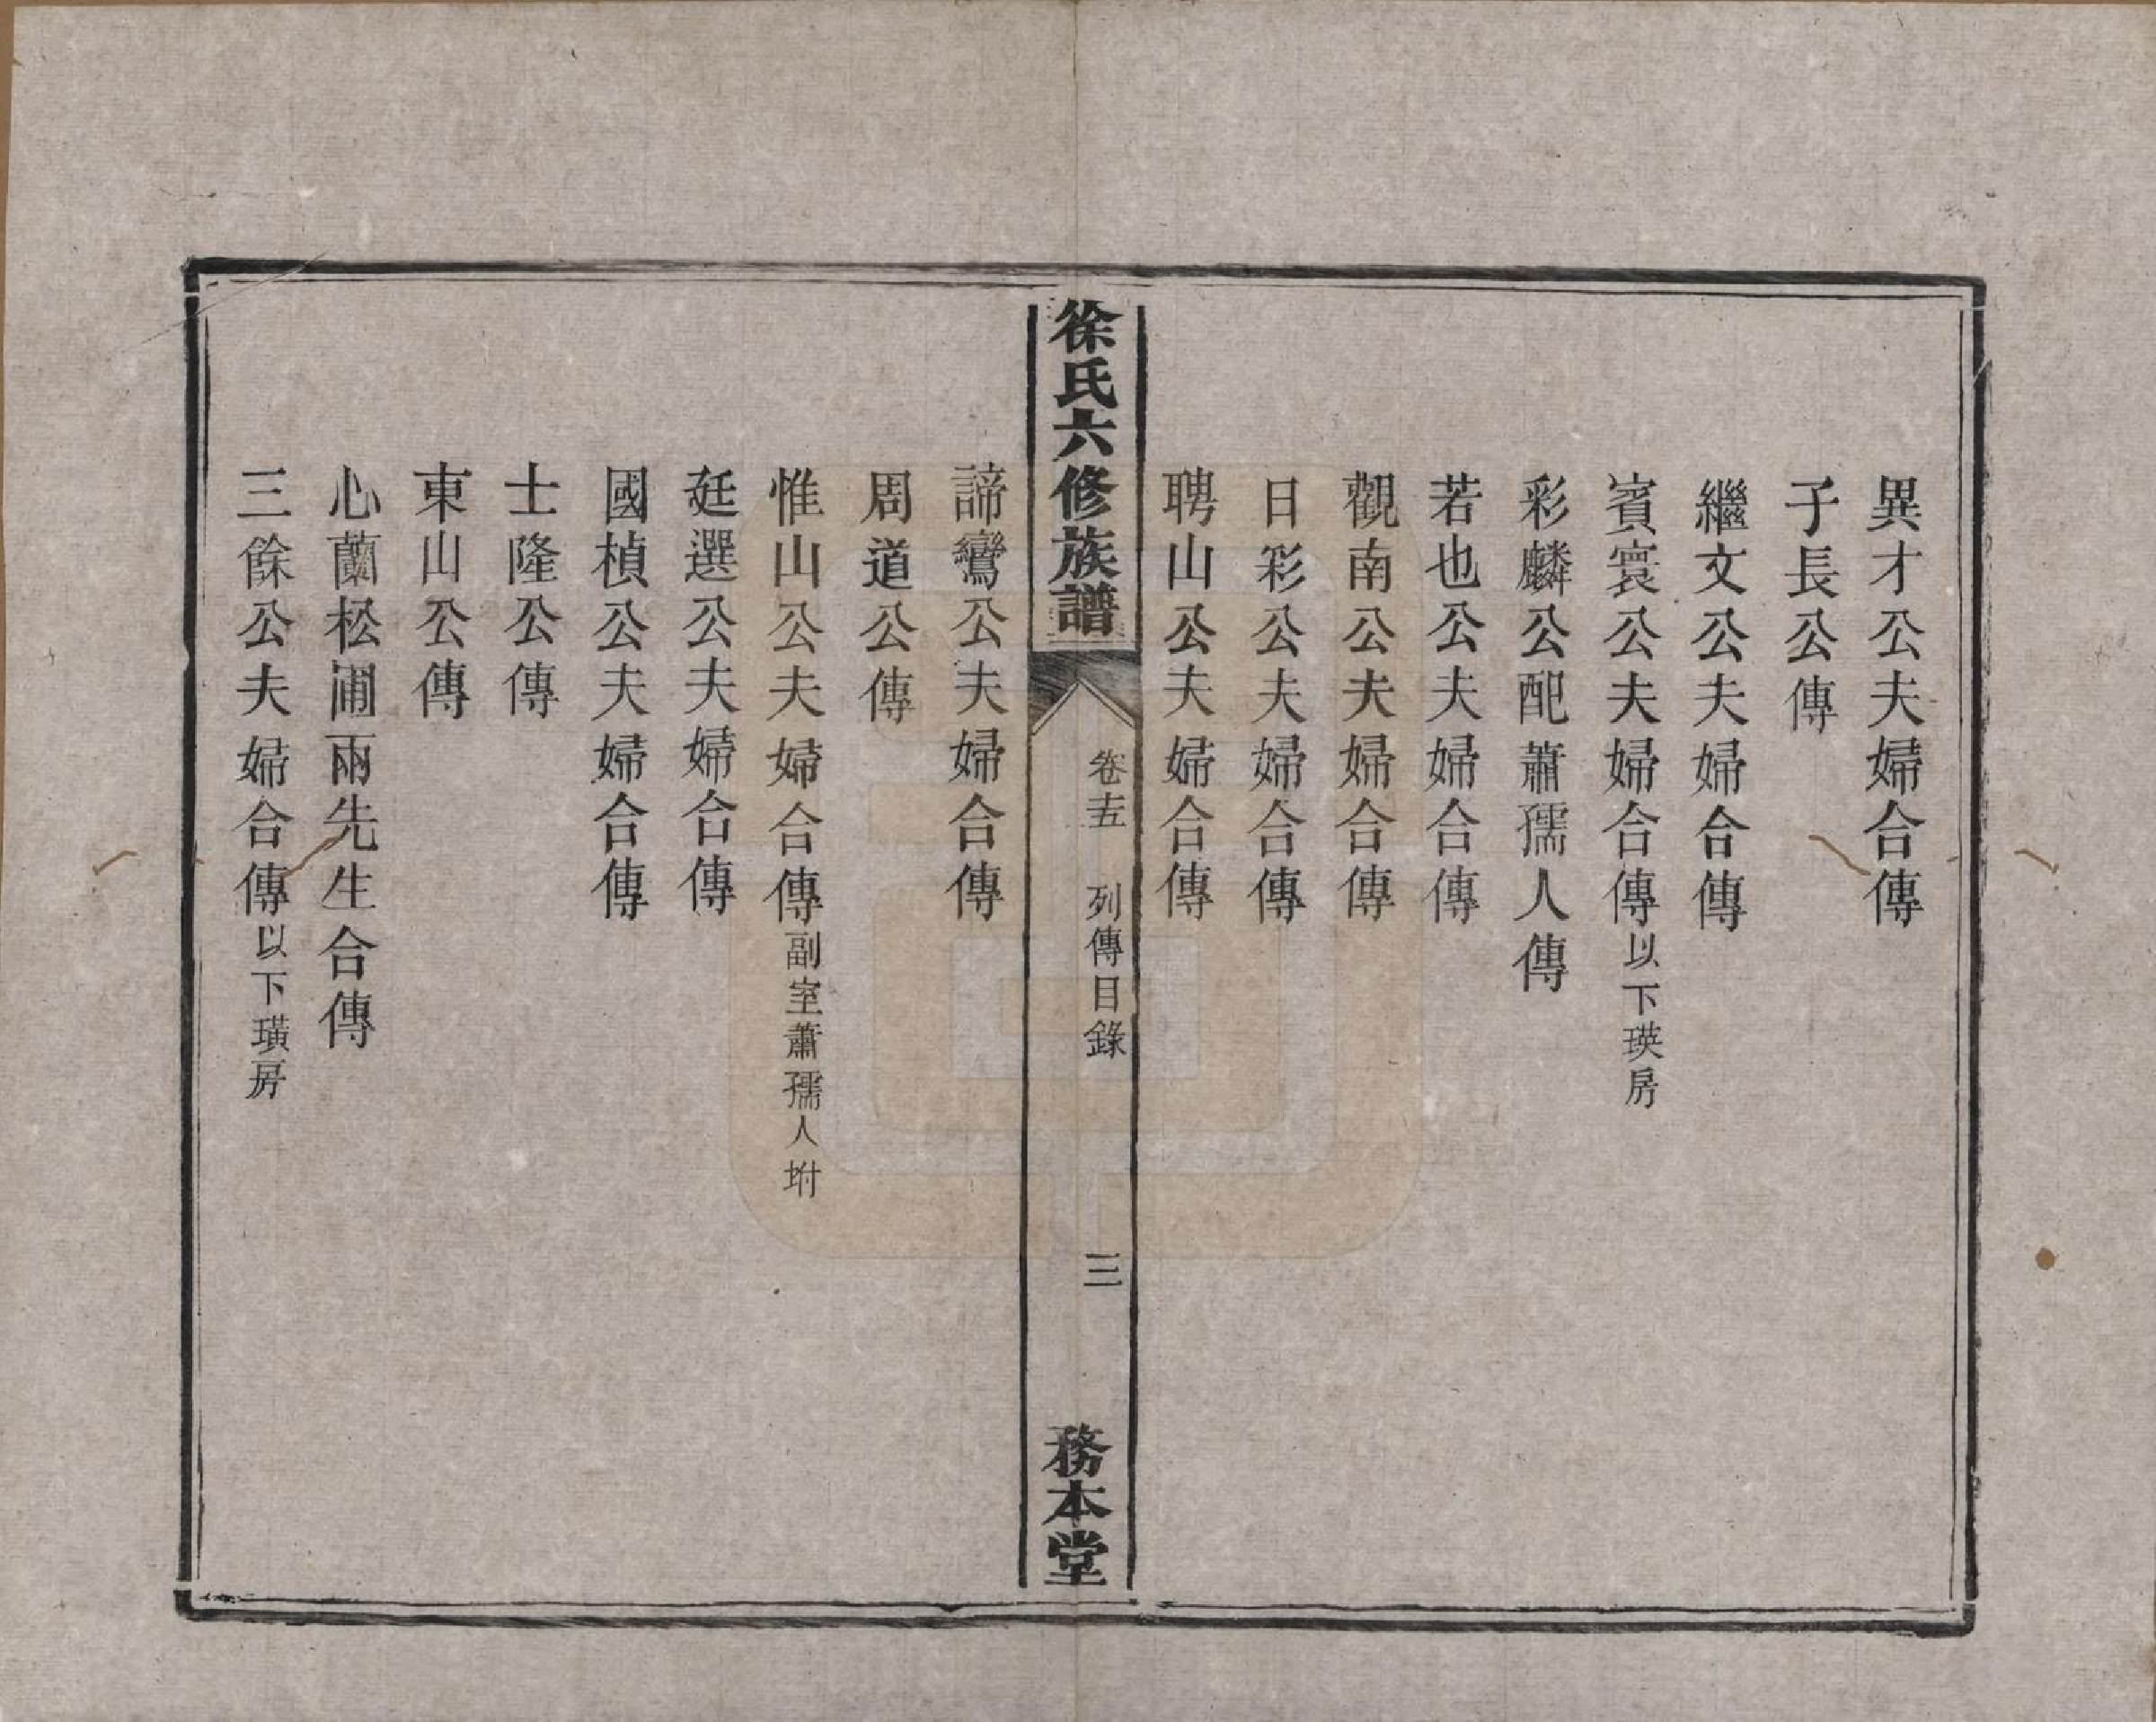 異才公夫婦合傳
子長公傳
繼文公夫婦合傳
賓寰公夫婦合傳以下瑛房
彩麟公配蕭孺人傳
若也公夫婦合傳
觀南公夫婦合傳
日彩公夫婦合傳
聘山公夫婦合傳
徐氏六修族譜
卷十五 列傳目錄
三
務本堂
諦鸞公夫婦合傳
周道公傳
惟山公夫婦合傳副室蕭孺人坿
廷選公夫婦合傳
國楨公夫婦合傳
士隆公傳
東山公傳
心蘭松圃兩先生合傳
三餘公夫婦合傳以下璜房